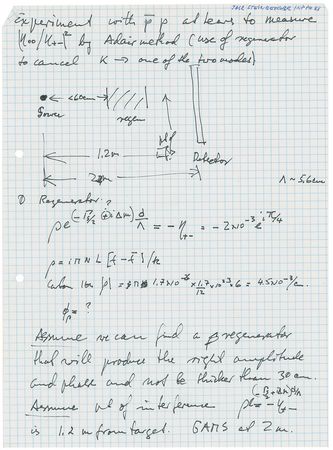 Experiment with p̄ p at lears to measure
|η00/η+-|² by Adair method (use of regenerator
to cancel K → one of the two modes)
<60cm
Source
regen
1.2m
2m
Detector
Λ ~ 5.6cm
① Regenerator?
ρe^(-Γs/2 + iΔm) d/Λ = -η+- = -2×10^-3 e^iπ/4
ρ = iπNL[f-f̄]/k
Carbon 1cm |ρ| = 1.7×10^-6 × 1.7/12 × 10^23 × 6 = 4.5×10^-3/cm.
φρ = ?
Assume we can find a regenerator
that will produce the right amplitude
and phase and not be thicker than 30cm.
Assume pt of interference
is 1.2m from target. GAMS at 2m.